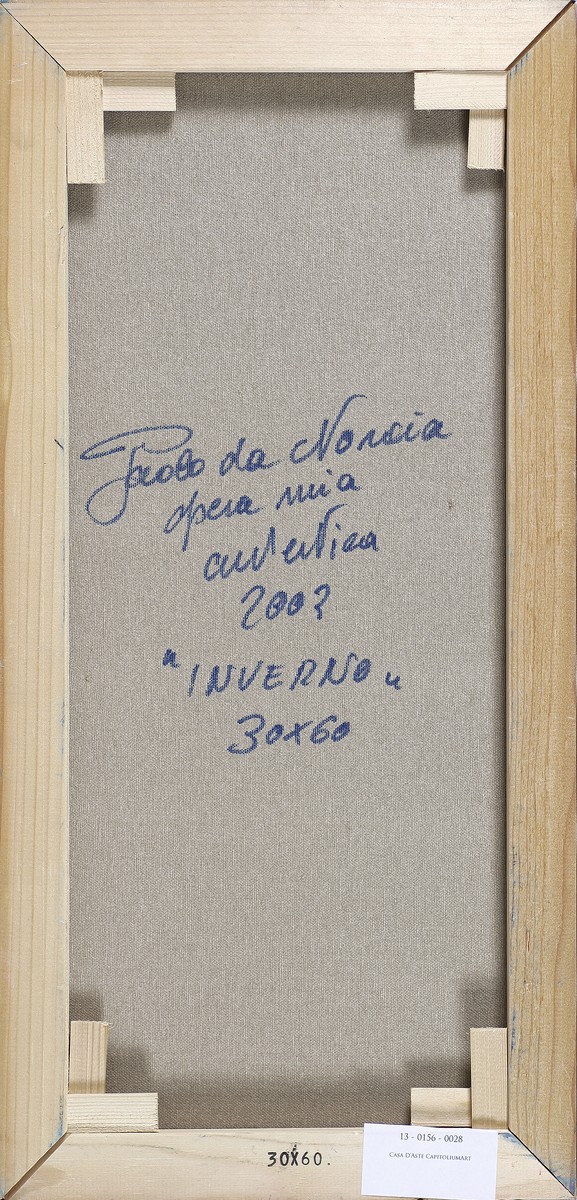 Paolo da Norcia
opera mia
autentica
2002
"INVERNO"
30x60
30X60.
13 - 0156 - 0028
CASA D'ASTE CAPITOLIUMART